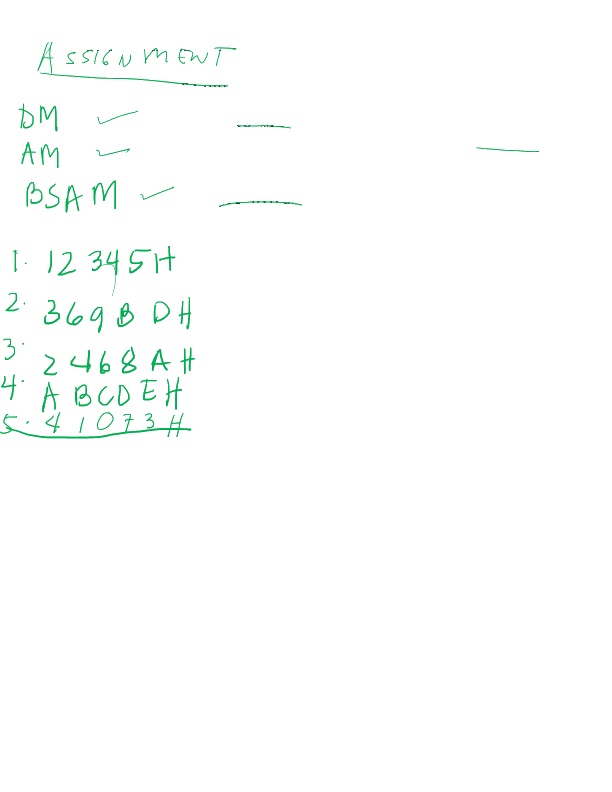 ASSIGNMENT
DM ✓
AM ✓
BSAM ✓
1. 12345H
2. 369BDH
3. 2468AH
4. ABCDEH
5. 41073H